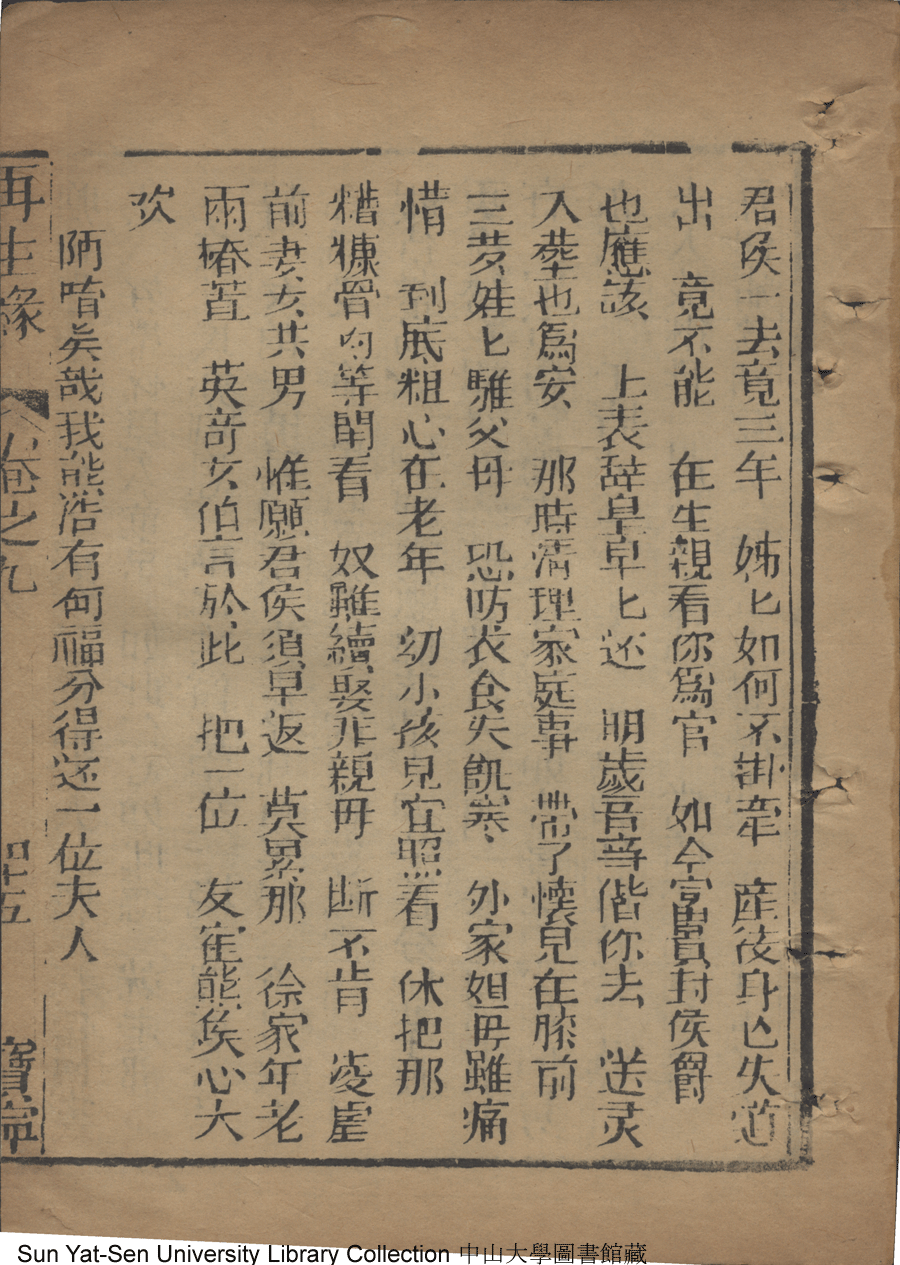 君侯一去竟三年　姊匕如何不掛牵　産後身亡失道
出　竟不能　在生親看你爲官　如今富貴封侯爵
也應該　上表辞皇早匕还　明歲吾弟偕你去　送灵
入塋也爲安　那時清理家庭事　帶了懷兒在膝前
三岁娃匕離父母　恐防衣食失飢寒　外家姐毋雖痛
惜　到底粗心在老年　幼小孩兒宜照看　休把那
糟糠骨肉等閒看　奴雖續娶非親毋　断不肯　凌虐
前妻女共男　惟願君侯須早返　莫累那　徐家年老
兩椿萱　英奇女伯言於此　把一位　友寉熊侯心大
欢
陋㖧矣哉我熊浩有何福分得还一位夫人
再生緣　卷之九　四十五　寶寧
Sun Yat-Sen University Library Collection 中山大學圖書館藏